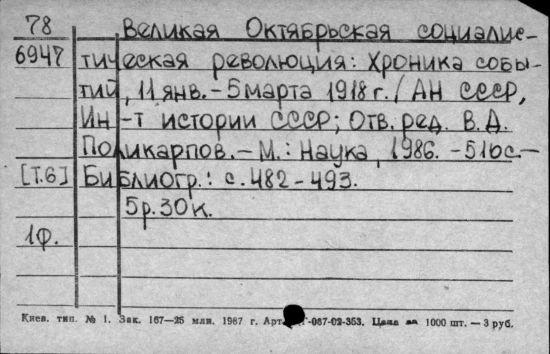 78 Великая Октябрьская социалис-
6947 тическая революция: Хроника собы-
тий, 11 янв. – 5 марта 1918 г. / АН СССР,
Ин-т истории СССР; Отв. ред. В.Д.
Поликарпов. – М.: Наука, 1986. – 510с. –
[Т.6] Библиогр.: с. 482 – 493.
5р. 30к.
1ф.
Киев. тип. № 1. Зак. 167—25 млн. 1987 г. Арт. -067-02-353. Цена за 1000 шт. — 3 руб.